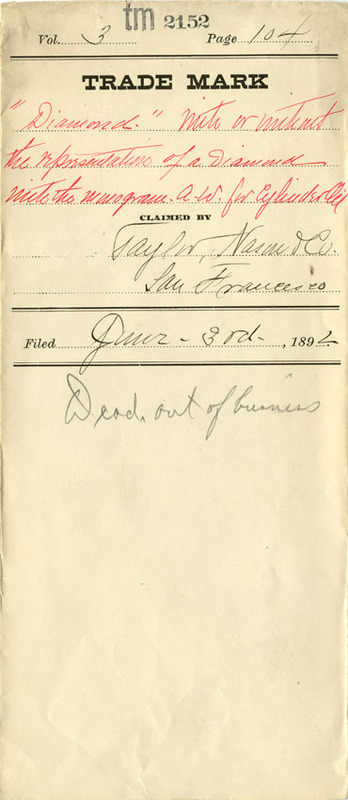 tm 2152
Vol. 3 Page 104
TRADE MARK
"Diamond." with or without
the representation of a Diamond
with the monogram A.W. for Cylinder Oil
CLAIMED BY
Taylor, & Co.
San Francisco
Filed June 3rd , 1892
Dead. out of business